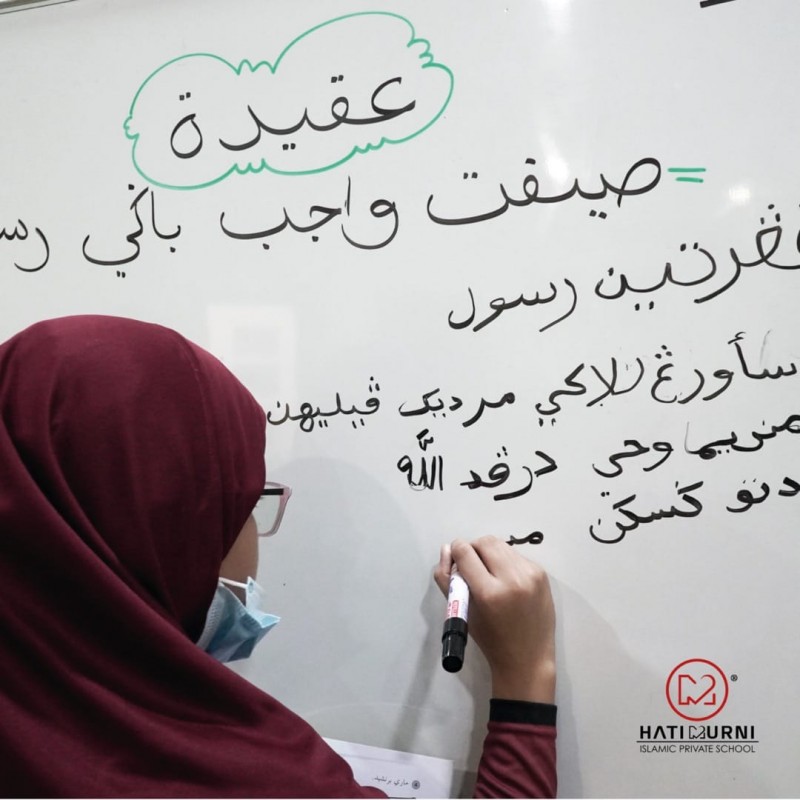 عقيدة
= صيفت واجب باݢي رس
ڤڠرتين رسول
سأورڠ للاكي مرديک ڤيليهن
منريما وحي درڤد اللّٰه
دتوݢسکن
ماري برنشيد.
HATI MURNI ®
ISLAMIC PRIVATE SCHOOL